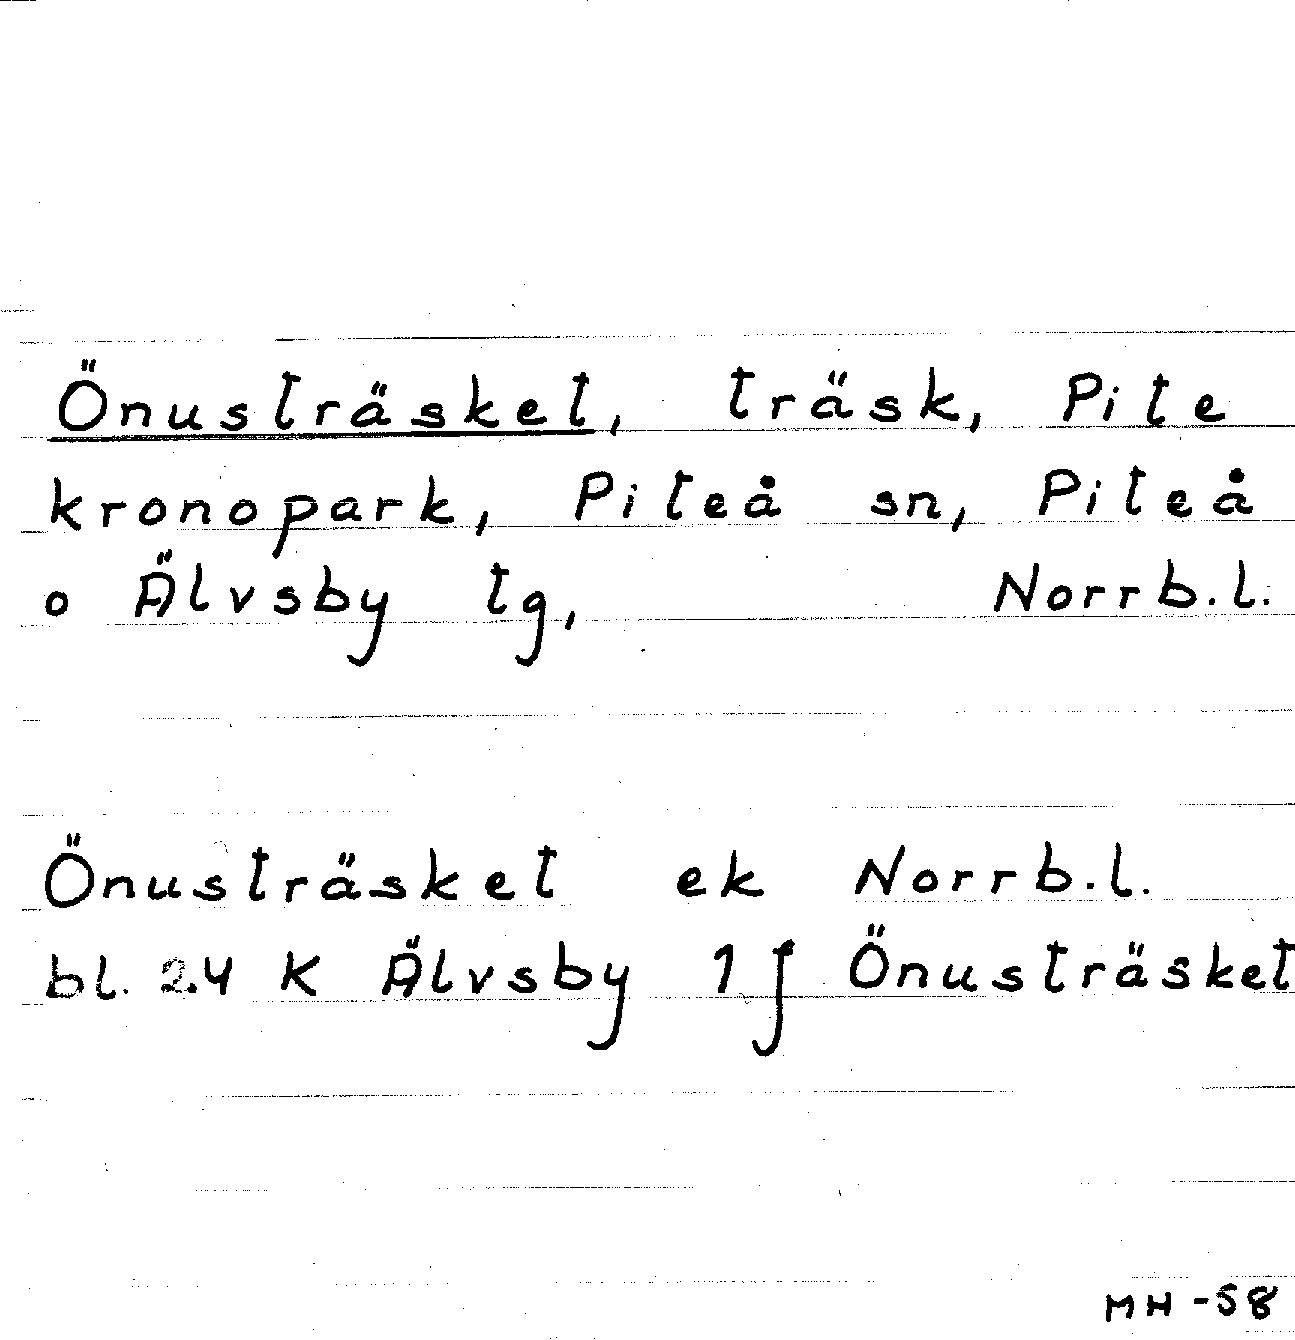 Önusträsket, träsk, Pite
kronopark, Piteå sn, Piteå
o Älvsby tg, Norrb.l.
Önusträsket ek Norrb.l.
bl. 24 K Älvsby 1 f Önusträsket
MH -58